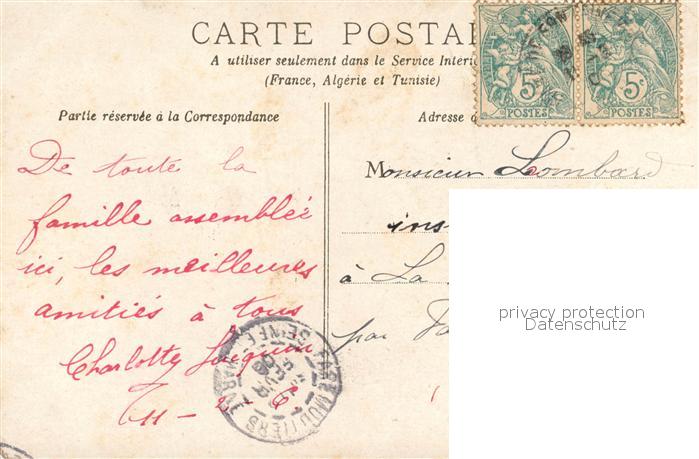 CARTE POSTAL
A utiliser seulement dans le Service Intéri
(France, Algérie et Tunisie)
Partie réservée à la Correspondance
Adresse d
5c 5c
POSTES POSTES
De toute la
famille assemblée
ici, les meilleures
amitiés à tous
Charlotte Jacquin
Monsieur Lombard
ins
à La
par
FAREMOUTIERS
SEINE-ET-MARNE
privacy protection
Datenschutz